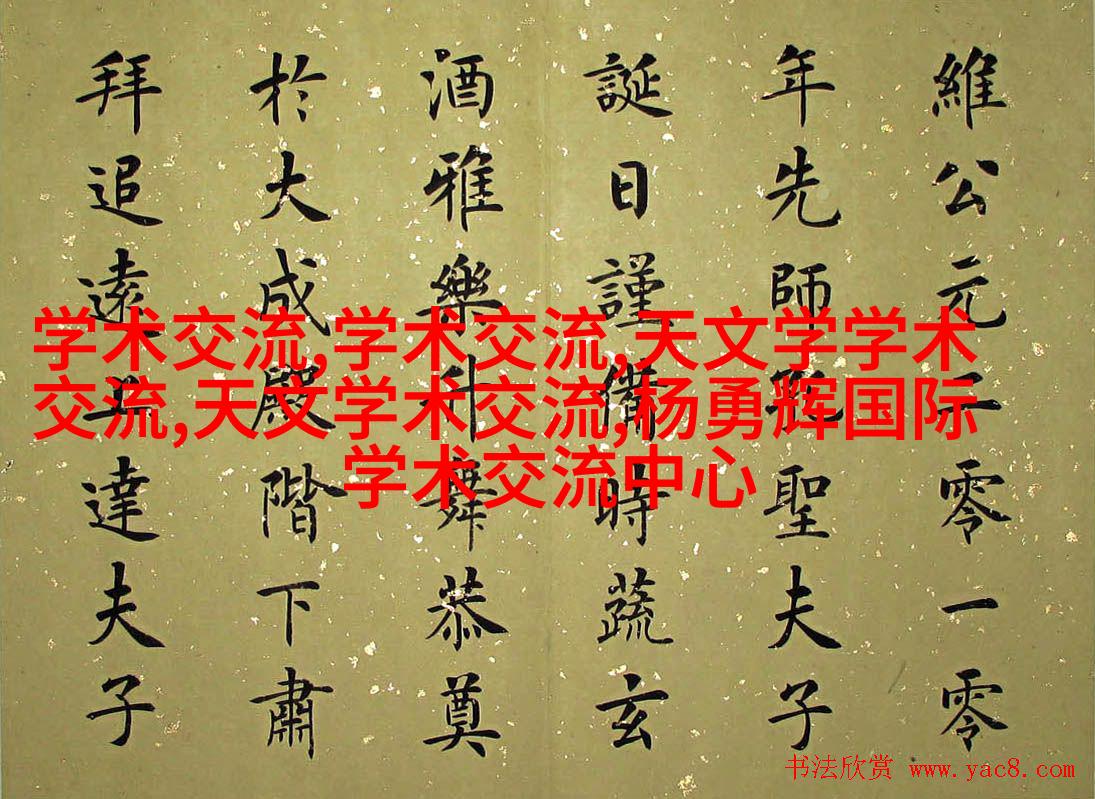 維公元二零一零
年先師孔聖夫子
誕日謹備時蔬玄
酒雅樂升舞恭奠
於大成殿階下肅
拜追遠達夫子
学术交流,学术交流,天文学学术
交流,天文学术交流,杨勇辉国际
学术交流中心
书法欣赏 www.yac8.com